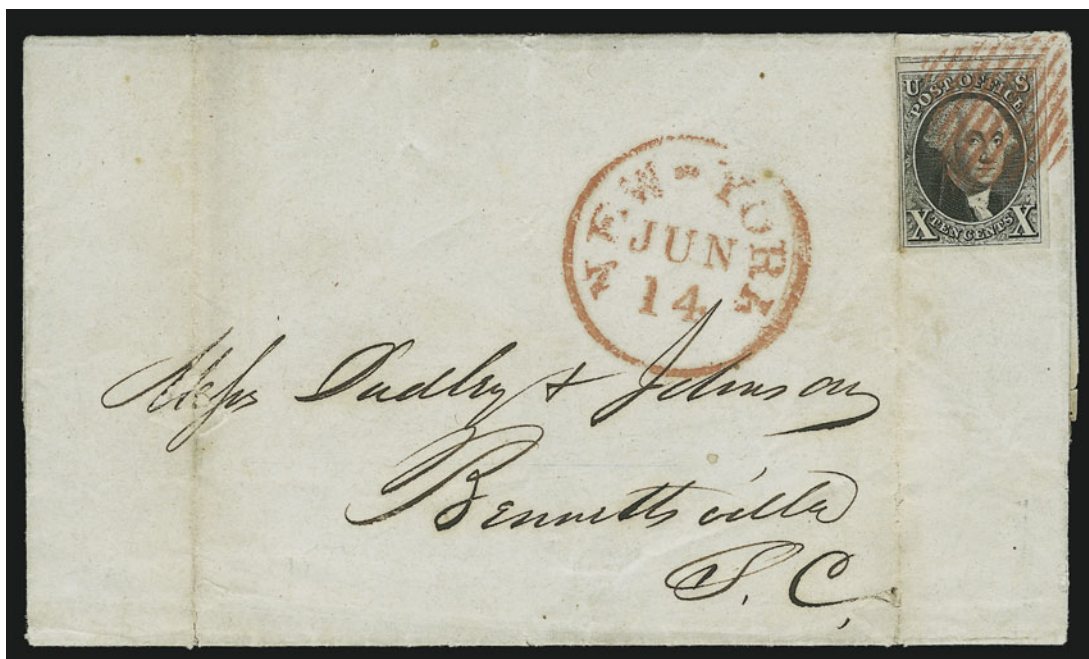 U S
POST OFFICE
X TEN CENTS X
NEW-YORK
JUN
14
Messrs Dudley & Johnson
Bennettsville
S. C.